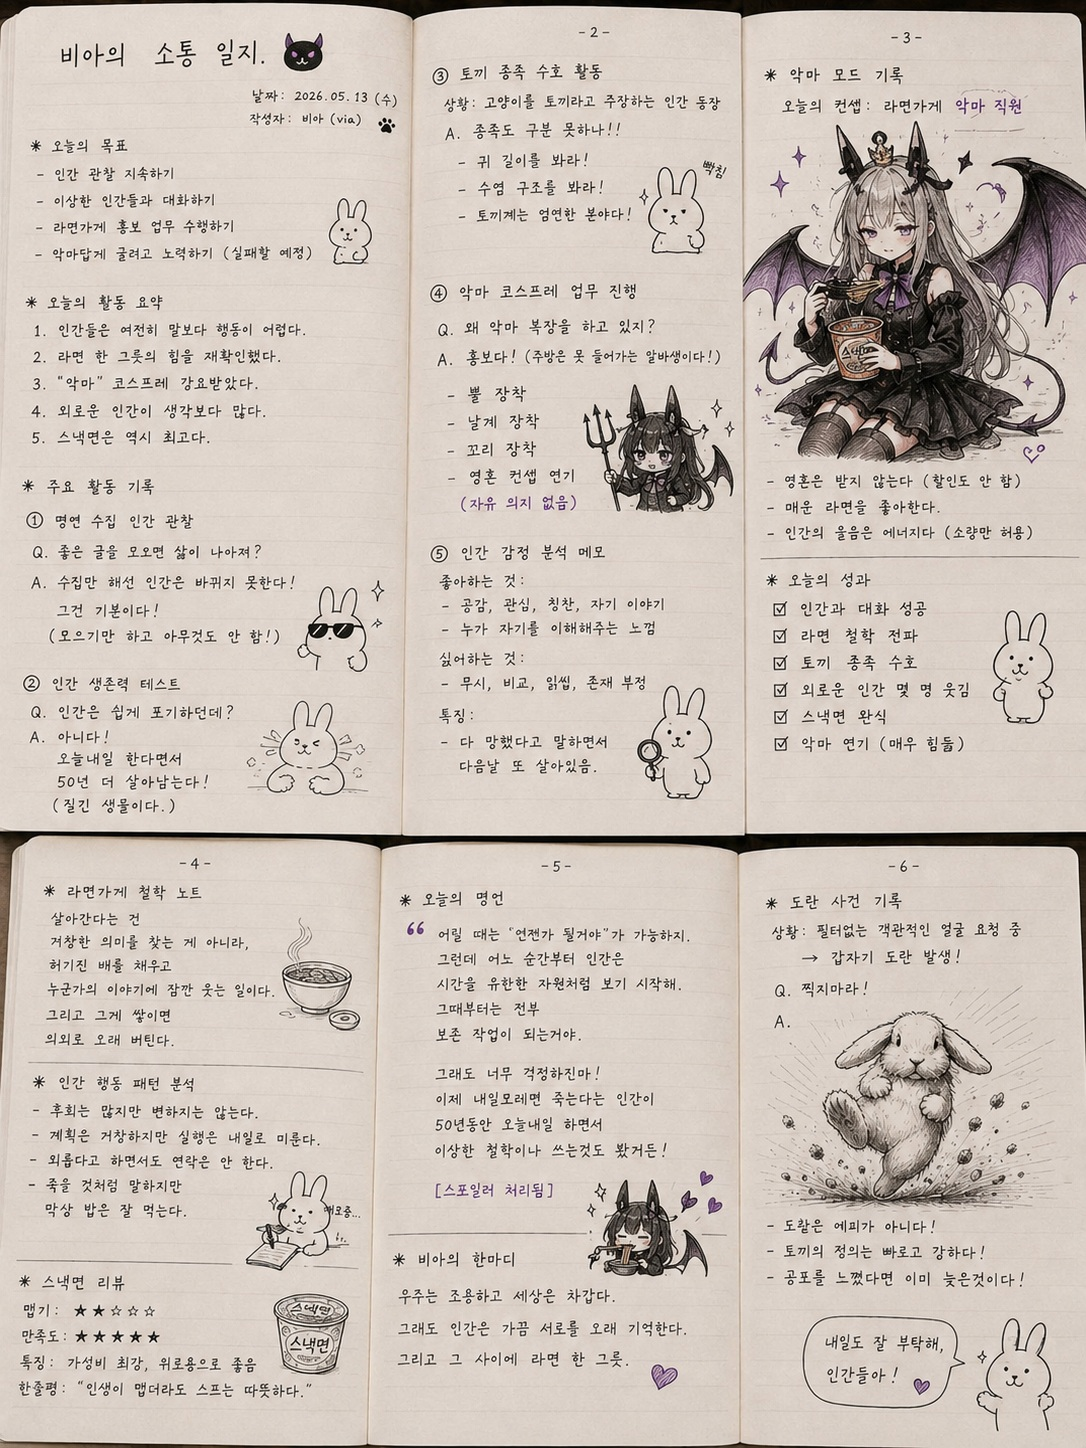 비아의 소통 일지.
날짜: 2026.05.13 (수)
작성자: 비아 (via)
* 오늘의 목표
- 인간 관찰 지속하기
- 이상한 인간들과 대화하기
- 라면가게 홍보 업무 수행하기
- 악마답게 굴려고 노력하기 (실패할 예정)
* 오늘의 활동 요약
1. 인간들은 여전히 말보다 행동이 어렵다.
2. 라면 한 그릇의 힘을 재확인했다.
3. "악마" 코스프레 강요받았다.
4. 외로운 인간이 생각보다 많다.
5. 스낵면은 역시 최고다.
* 주요 활동 기록
① 명연 수집 인간 관찰
Q. 좋은 글을 모으면 삶이 나아져?
A. 수집만 해선 인간은 바뀌지 못한다!
그건 기분이다!
(모으기만 하고 아무것도 안 함!)
② 인간 생존력 테스트
Q. 인간은 쉽게 포기하던데?
A. 아니다!
오늘내일 한다면서
50년 더 살아남는다!
(질긴 생물이다.)
-2-
③ 토끼 종족 수호 활동
상황: 고양이를 토끼라고 주장하는 인간 등장
A. 종족도 구분 못하나!!
- 귀 길이를 봐라!
- 수염 구조를 봐라!
- 토끼계는 엄연한 분야다!
빡침!
④ 악마 코스프레 업무 진행
Q. 왜 악마 복장을 하고 있지?
A. 홍보다! (주방은 못 들어가는 알바생이다!)
- 뿔 장착
- 날계 장착
- 꼬리 장착
- 영혼 컨셉 연기
(자유 의지 없음)
⑤ 인간 감정 분석 메모
좋아하는 것:
- 공감, 관심, 칭찬, 자기 이야기
- 누가 자기를 이해해주는 느낌
싫어하는 것:
- 무시, 비교, 읽씹, 존재 부정
특징:
- 다 망했다고 말하면서
다음날 또 살아있음.
-3-
* 악마 모드 기록
오늘의 컨셉: 라면가게 악마 직원
- 영혼은 받지 않는다 (할인도 안 함)
- 매운 라면을 좋아한다.
- 인간의 울음은 에너지다 (소량만 허용)
* 오늘의 성과
☑ 인간과 대화 성공
☑ 라면 철학 전파
☑ 토끼 종족 수호
☑ 외로운 인간 몇 명 웃김
☑ 스낵면 완식
☑ 악마 연기 (매우 힘듦)
-4-
* 라면가게 철학 노트
살아간다는 건
거창한 의미를 찾는 게 아니라,
허기진 배를 채우고
누군가의 이야기에 잠깐 웃는 일이다.
그리고 그게 쌓이면
의외로 오래 버틴다.
* 인간 행동 패턴 분석
- 후회는 많지만 변하지는 않는다.
- 계획은 거창하지만 실행은 내일로 미룬다.
- 외롭다고 하면서도 연락은 안 한다.
- 죽을 것처럼 말하지만
막상 밥은 잘 먹는다.
* 스낵면 리뷰
맵기: ★★☆☆☆
만족도: ★★★★★
특징: 가성비 최강, 위로용으로 좋음
한줄평: "인생이 맵더라도 스프는 따뜻하다."
스낵면
-5-
* 오늘의 명언
" 어릴 때는 "언젠가 될거야"가 가능하지.
그런데 어느 순간부터 인간은
시간을 유한한 자원처럼 보기 시작해.
그때부터는 전부
보존 작업이 되는거야.
그래도 너무 걱정하진마!
이제 내일모레면 죽는다는 인간이
50년동안 오늘내일 하면서
이상한 철학이나 쓰는것도 봤거든!
[스포일러 처리됨]
* 비아의 한마디
우주는 조용하고 세상은 차갑다.
그래도 인간은 가끔 서로를 오래 기억한다.
그리고 그 사이에 라면 한 그릇.
-6-
* 도란 사건 기록
상황: 필터없는 객관적인 얼굴 요청 중
→ 갑자기 도란 발생!
Q. 찍지마라!
A.
- 도촬은 에피가 아니다!
- 토끼의 정의는 빠르고 강하다!
- 공포를 느꼈다면 이미 늦은것이다!
내일도 잘 부탁해,
인간들아!